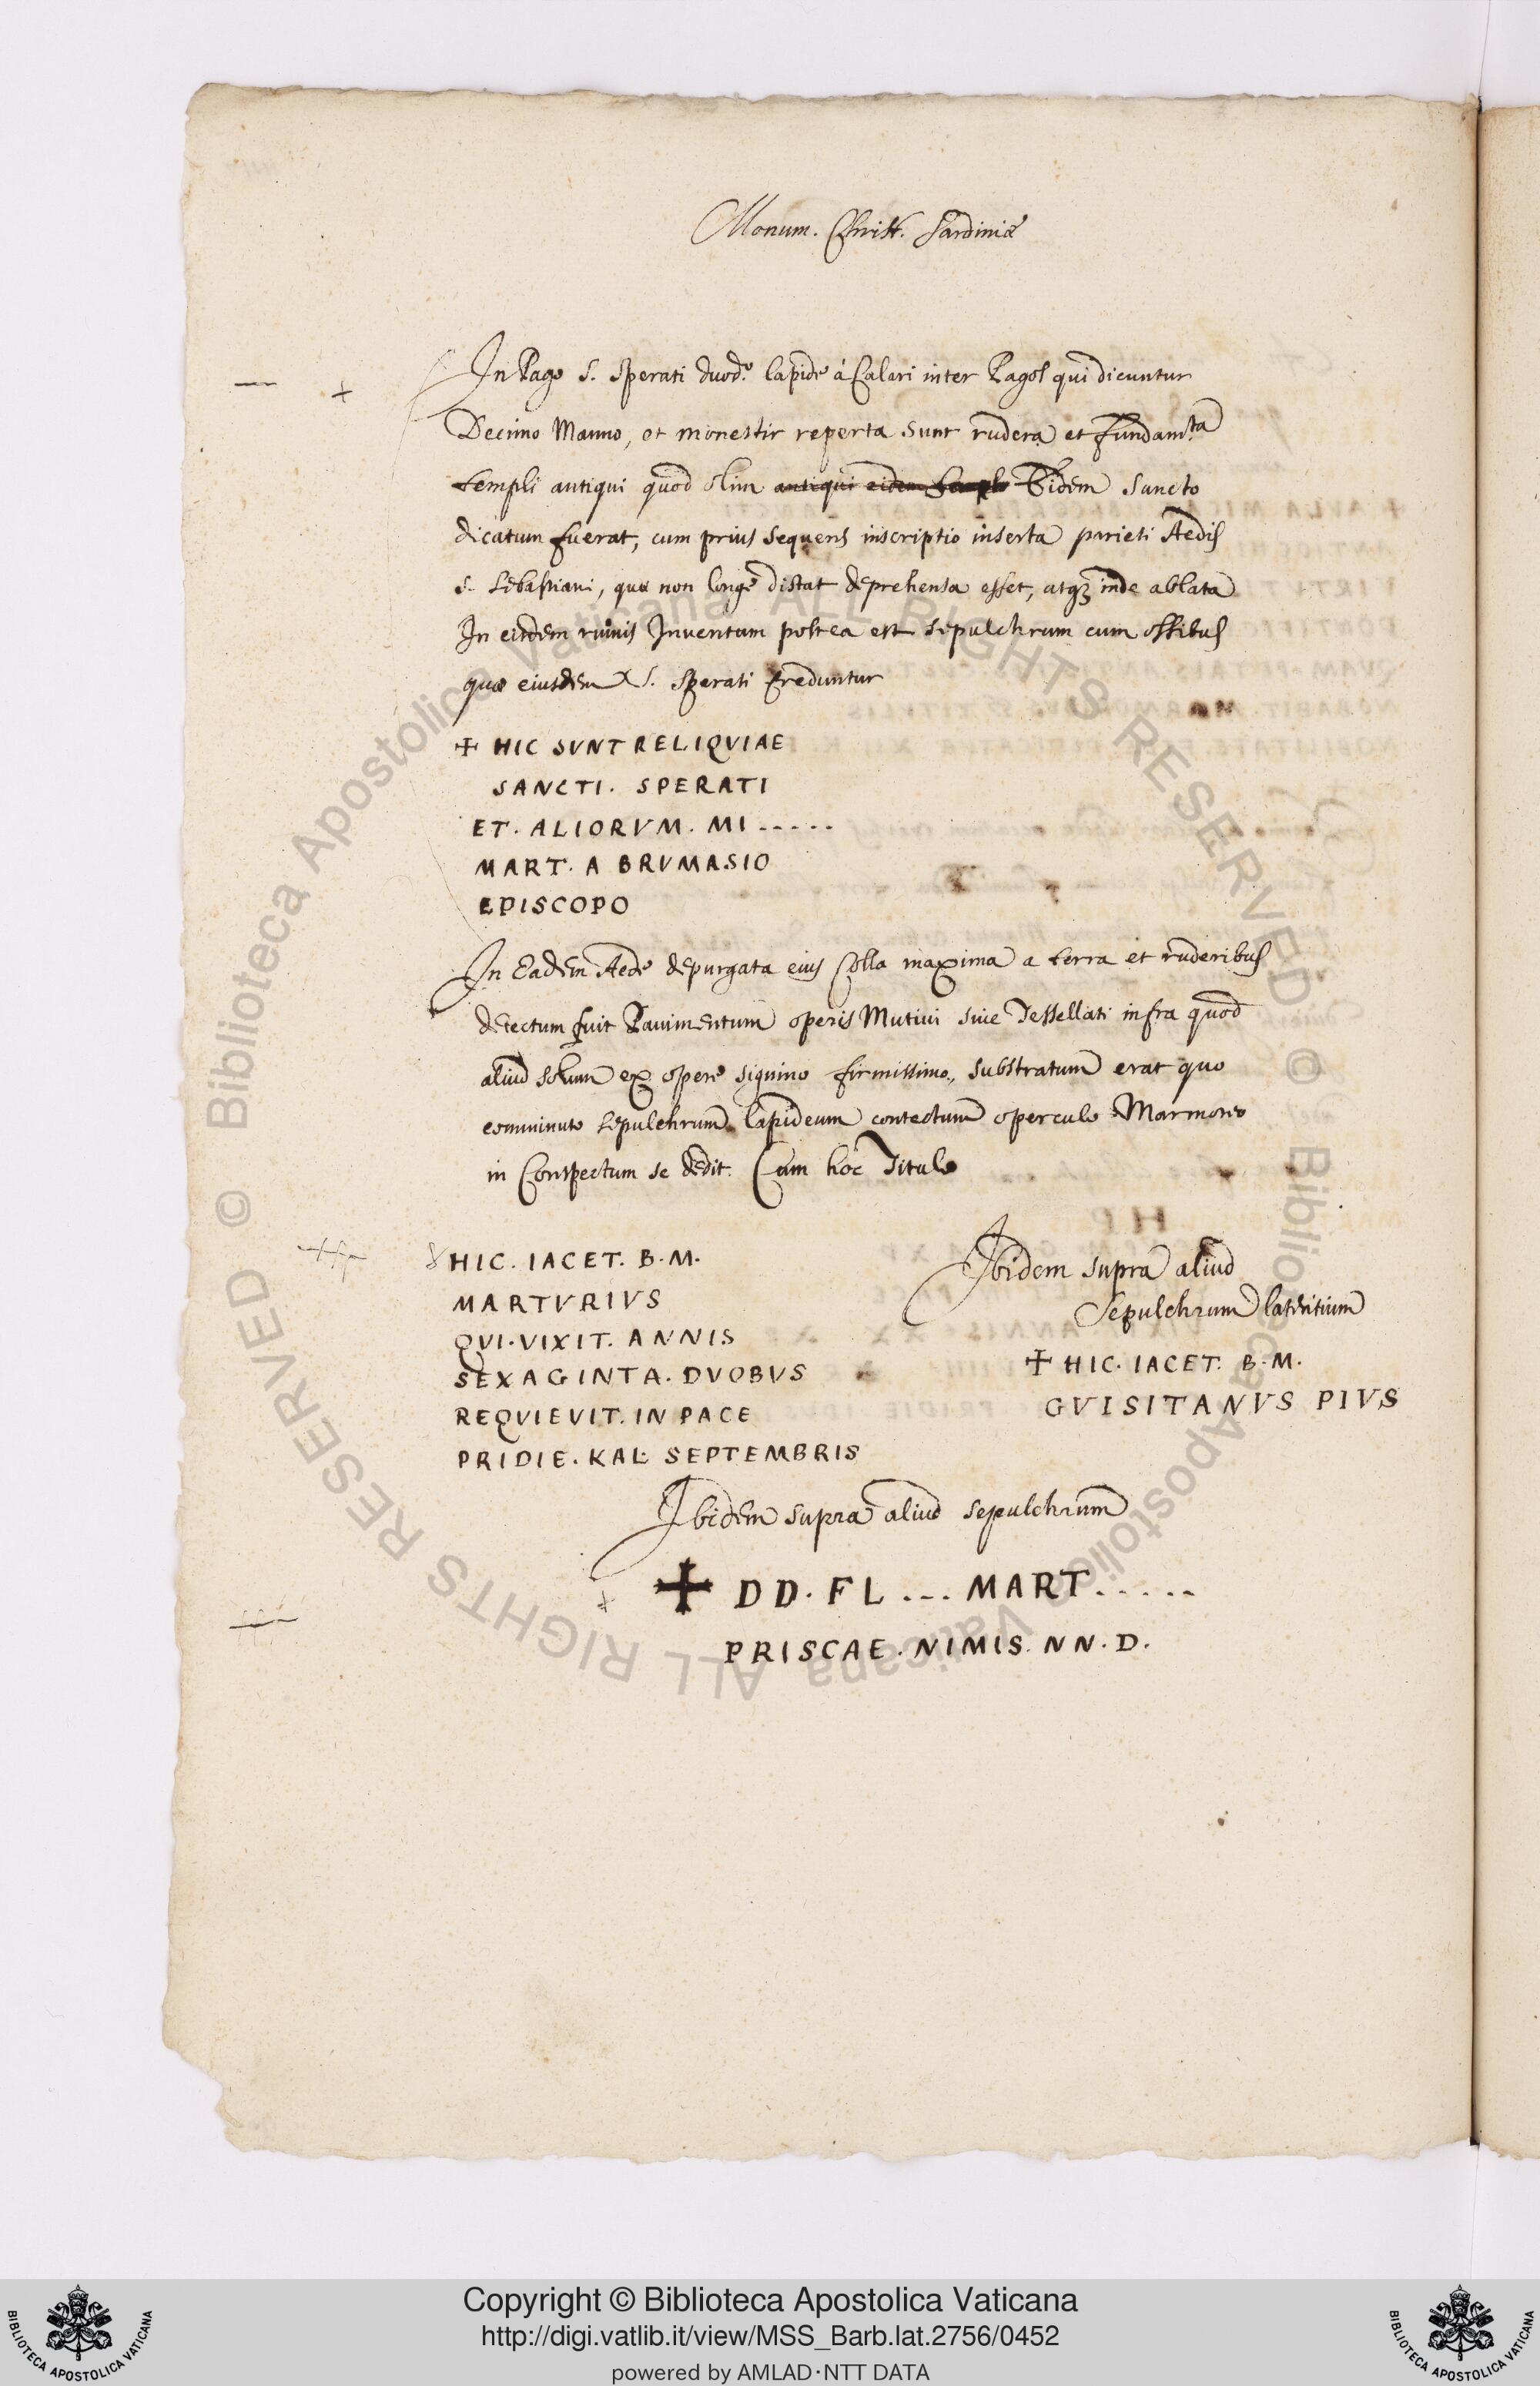 Monum. Christ. Sardiniæ
In Pago S. Sperati duod.º lapide à Calari inter Pagos qui dicuntur
Decimo Manno, et monestir reperta sunt rudera et fundam.ta
templi antiqui quod olim antiqui eidem templo Eidem Sancto
dicatum fuerat, cum prius sequens inscriptio inserta parieti Aedis
S. Sebastiani, quæ non longe distat deprehensa esset, atq; inde ablata
In eisdem ruinis Inventum postea est sepulchrum cum ossibus
quæ eiusdem S. Sperati creduntur
+ HIC SVNT RELIQVIAE
SANCTI. SPERATI
ET. ALIORVM. MI.....
MART. A BRVMASIO
EPISCOPO
In Eadem Aede depurgata eius Cella maxima a terra et ruderibus
detectum fuit Pavimentum operis Mutivi sive Tessellati infra quod
aliud solum ex opere signino firmissimo, substratum erat quo
comminuto sepulchrum lapideum contectum operculo Marmoreo
in Conspectum se dedit. Cum hoc Titulo
HIC. IACET. B.M.
MARTVRIVS
QVI. VIXIT. ANNIS
SEXAGINTA. DVOBVS
REQVIEVIT. IN PACE
PRIDIE. KAL. SEPTEMBRIS
Ibidem supra aliud
Sepulchrum lateritium
+ HIC. IACET. B.M.
GVISITANVS PIVS
Ibidem supra aliud sepulchrum
+ DD. FL ... MART.....
PRISCAE. NIMIS. NN. D.
© Biblioteca Apostolica Vaticana ALL RIGHTS RESERVED © Biblioteca Apostolica Vaticana ALL RIGHTS RESERVED
Copyright © Biblioteca Apostolica Vaticana
http://digi.vatlib.it/view/MSS_Barb.lat.2756/0452
powered by AMLAD·NTT DATA
BIBLIOTECA APOSTOLICA VATICANA
BIBLIOTECA APOSTOLICA VATICANA